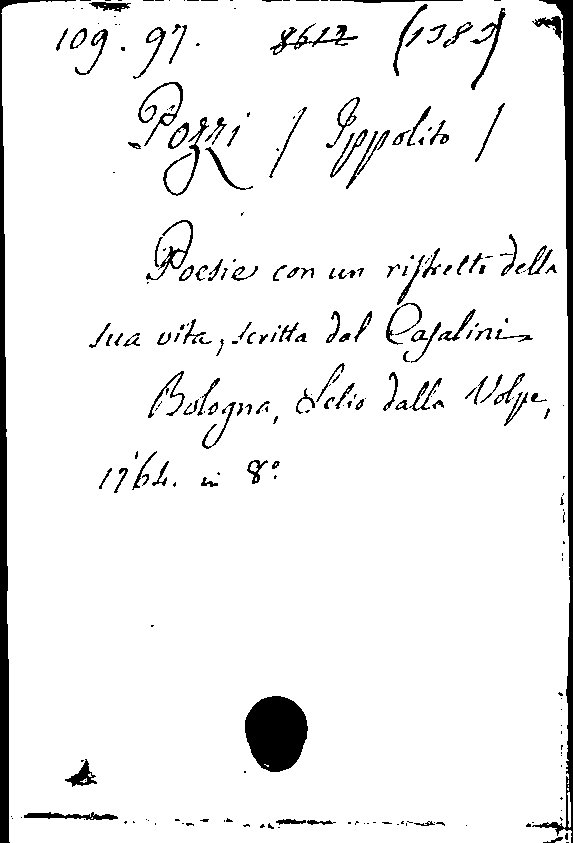 109. 97. 8612 (1383)
Pozzi / Ippolito /
Poesie con un ristretto della
sua vita, scritta dal Casalini
Bologna, Lelio dalla Volpe,
1764. in 8°.